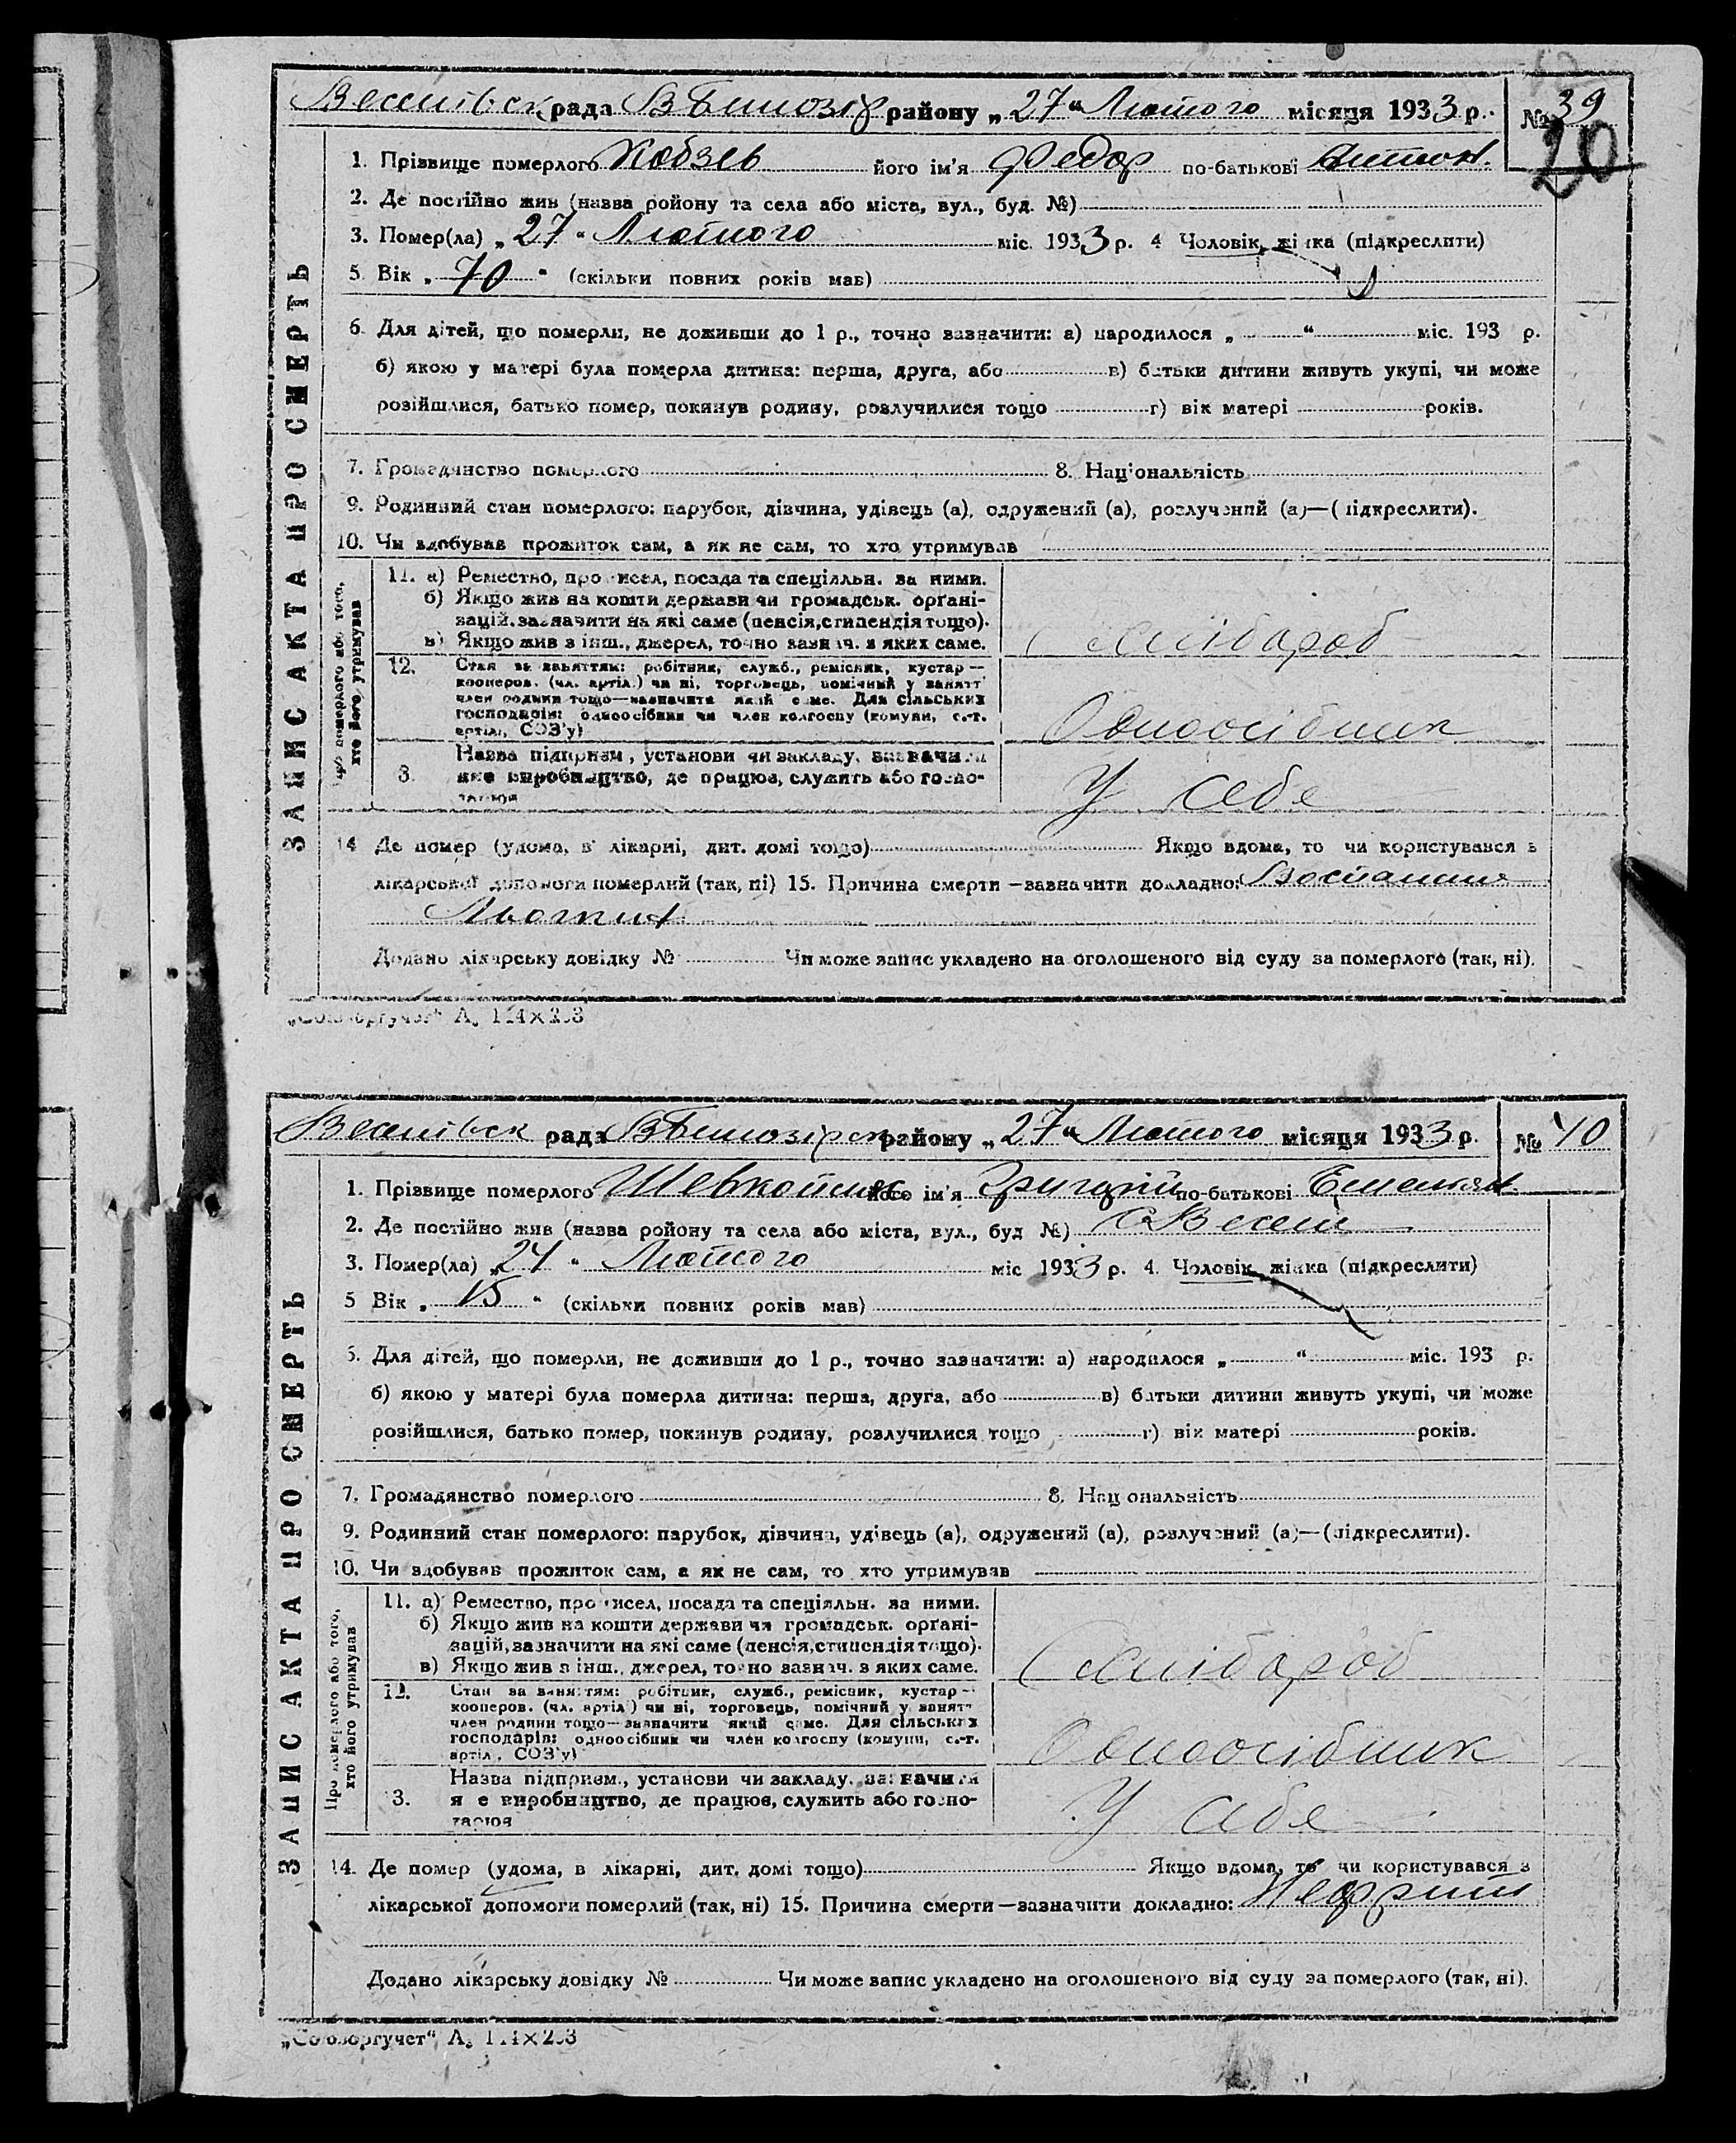 рада В Білозір району „27“ Лютого місяця 1933 р. № 39
20
1. Прізвище померлого Кобзєв його ім'я Федор по-батькові Антон.
2. Де постійно жив (назва ройону та села або міста, вул., буд. №)
3. Помер(ла) „27“ Лютого міс. 1933 р. 4 Чоловік, жінка (підкреслити)
5 Вік „70“ (скільки повних років мав)
6. Для дітей, що померли, не доживши до 1 р., точно зазначити: а) народилося „ “ міс. 193 р.
б) якою у матері була померла дитина: перша, друга, або в) батьки дитини живуть укупі, чи може
розійшлися, батько помер, покинув родину, розлучилися тощо г) вік матері років.
7. Громадянство померлого 8. Національність
9. Родинний стан померлого: парубок, дівчина, удівець (а), одружений (а), розлучений (а)—(підкреслити).
10. Чи здобував прожиток сам, а як не сам, то хто утримував
ЗАПИС АКТА ПРО СМЕРТЬ
Про померлого або того, хто його утримував
11. а) Ремество, промисел, посада та спеціяльн. за ними.
б) Якщо жив на кошти держави чи громадськ. орґані-
зацій, зазначити на які саме (пенсія, стипендія тощо).
в) Якщо жив з інш., джерел, точно зазнач. з яких саме.
Хлібороб
12. Стан за заняттям: робітник, служб., ремісник, кустар—
кооперов. (чл. артіл.) чи ні, торговець, помічний у занятт
член родини тощо—зазначити який саме. Для сільських
господарів: одноосібник чи член колгоспу (комуни, с.-г.
артіл., СОЗ'у)
Одноосібник
3. Назва підприєм., установи чи закладу, зазначити
яке виробництво, де працює, служить або госпо-
дарює
У себе
14 Де помер (удома, в лікарні, дит. домі тощо) Якщо вдома, то чи користувався з
лікарської допомоги померлий (так, ні) 15. Причина смерти—зазначити докладно: Воспалиння
Льогких
Додано лікарську довідку № Чи може запис укладено на оголошеного від суду за померлого (так, ні).
„Союзоргучет“
рада В Білозірск району „27“ Лютого місяця 1933 р. № 40
1. Прізвище померлого його ім'я Григорій по-батькові
2. Де постійно жив (назва ройону та села або міста, вул., буд №)
3. Помер(ла) „24“ Лютого міс 1933 р. 4. Чоловік, жінка (підкреслити)
5 Вік „15“ (скільки повних років мав)
6. Для дітей, що померли, не доживши до 1 р., точно зазначити: а) народилося „ “ міс. 193 р.
б) якою у матері була померла дитина: перша, друга, або в) батьки дитини живуть укупі, чи може
розійшлися, батько помер, покинув родину, розлучилися тощо г) вік матері років.
7. Громадянство померлого 8. Національність
9. Родинний стан померлого: парубок, дівчина, удівець (а), одружений (а), розлучений (а)—(підкреслити).
10. Чи здобував прожиток сам, а як не сам, то хто утримував
ЗАПИС АКТА ПРО СМЕРТЬ
Про померлого або того, хто його утримував
11. а) Ремество, промисел, посада та спеціяльн. за ними.
б) Якщо жив на кошти держави чи громадськ. орґані-
зацій, зазначити на які саме (пенсія, стипендія тощо).
в) Якщо жив з інш., джерел, точно зазнач. з яких саме.
Хлібороб
12. Стан за заняттям: робітник, служб., ремісник, кустар—
кооперов. (чл. артіл.) чи ні, торговець, помічний у занятт
член родини тощо—зазначити який саме. Для сільських
господарів: одноосібник чи член колгоспу (комуни, с.-г.
артіл., СОЗ'у)
Одноосібник
3. Назва підприєм., установи чи закладу, зазначити
яке виробництво, де працює, служить або госпо-
дарює
У себе
14. Де помер (удома, в лікарні, дит. домі тощо) Якщо вдома, то чи користувався з
лікарської допомоги померлий (так, ні) 15. Причина смерти—зазначити докладно: Нефрит
Додано лікарську довідку № Чи може запис укладено на оголошеного від суду за померлого (так, ні).
„Союзоргучет“